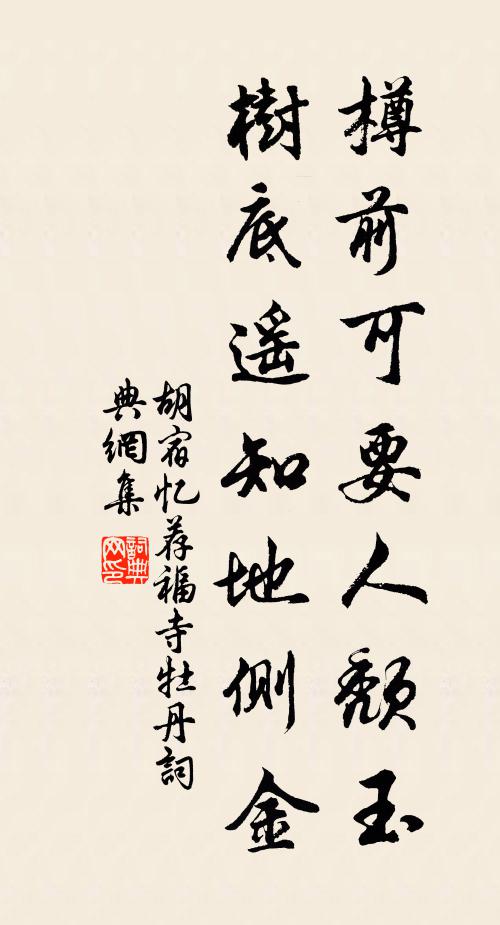 樽前可要人颓玉
樹底遥知地側金
胡宿忆荐福寺牡丹詞
典網集
詞典网印